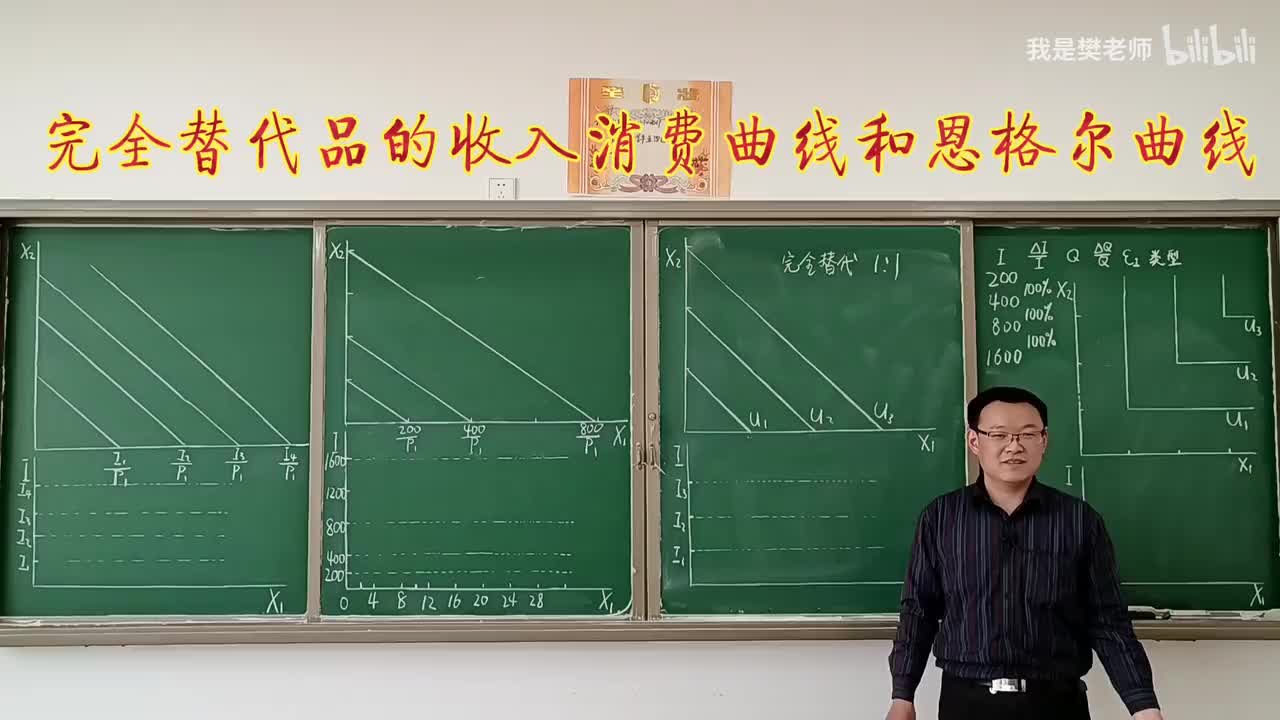 我是樊老师 bilibili
完全替代品的收入消费曲线和恩格尔曲线
X₂
I₁/P₁ I₂/P₁ I₃/P₁ I₄/P₁
I
I₄
I₃
I₂
I₁
X₁
X₂
200/P₁ 400/P₁ 800/P₁ X₁
I
1600
1200
800
400
200
0 4 8 12 16 20 24 28 X₁
完全替代 1:1
X₂
U₁ U₂ U₃
X₁
I
I₃
I₂
I₁
X₁
I ΔI/I Q ΔQ/Q ε₁ 类型
200
100%
400
100%
800
100%
1600
X₂
U₃
U₂
U₁
X₁
I
X₁